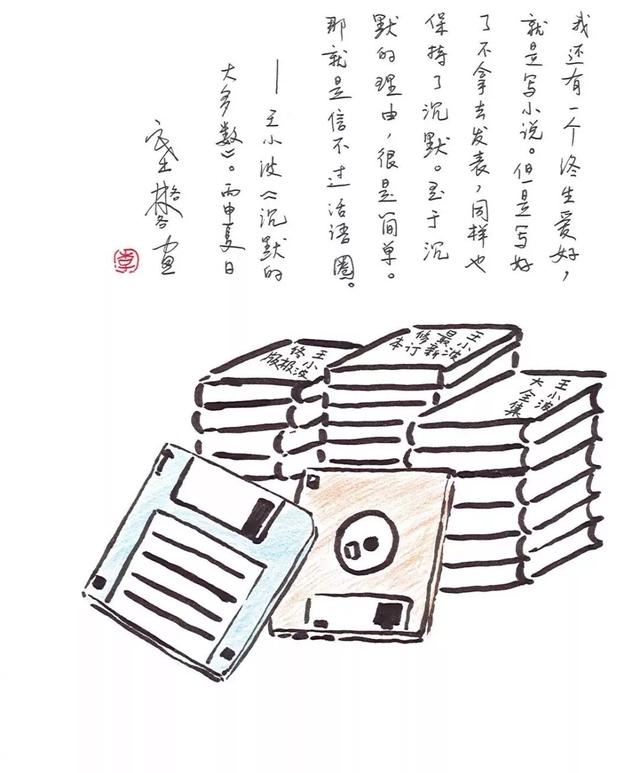 我还有一个终生爱好，
就是写小说。但是写好
了不拿去发表，同样也
保持了沉默。至于沉
默的理由，很是简单。
那就是信不过话语圈。
——王小波《沉默的
大多数》。丙申夏日
画
王小波
终极版
王小波
最新
修订
本
王小波
大全集